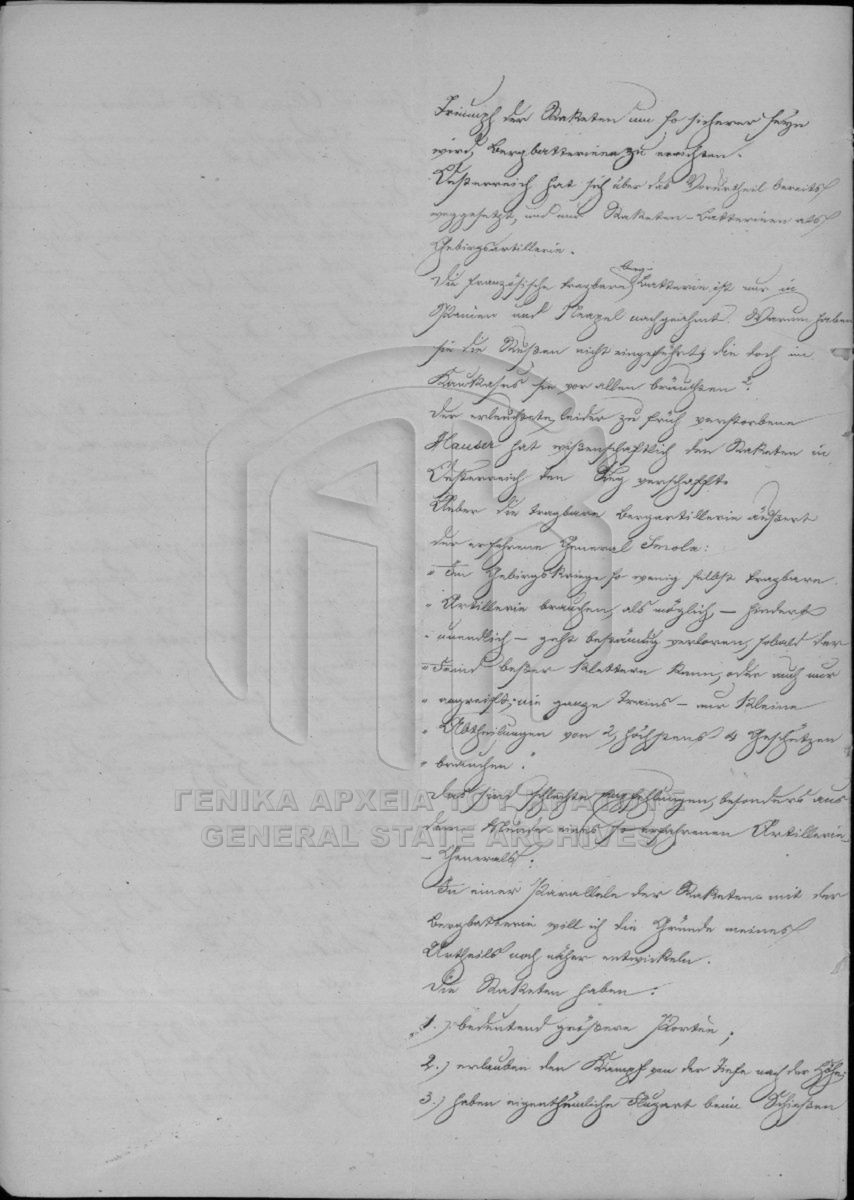 Triumpf der Raketen um so sicherer seyn
wird, Bergbatterieen zu errichten.
Oesterreich hat sich über das Vorurtheil bereits
weggesetzt, und nur Raketen-Batterieen als
Gebirgsartillerie.
Die französische tragbare Berg-Batterie, ist nur in
Spanien und Neapel nachgeahmt. Warum haben
sie die Rußen nicht eingeführt, die doch im
Kaukasus sie vor allen bräuchten?
Der erleuchtete, leider zu früh verstorbene
Hauser hat wißenschaftlich den Raketen in
Oesterreich den Sieg verschafft.
Ueber die tragbare Bergartillerie äußert
der erfahrene General Smola:
„Im Gebirgskriege so wenig selbst tragbare
„Artillerie brauchen, als möglich, – hindert
„unendlich – geht beständig verloren, sobald der
„Feind beßer klettern kann, oder auch nur
„angreift; nie ganze Trains – nur kleine
„Abtheilungen von 2, höchstens 4 Geschützen
„brauchen."
Das sind schlechte Empfehlungen, besonders aus
dem Munde eines so erfahrenen Artillerie-
-Generals.
In einer Parallele der Raketen mit der
Bergbatterie will ich die Gründe meines
Urtheils noch näher entwickeln.
Die Raketen haben:
1.) bedeutend größere Portée;
2.) erlauben den Kampf von der Tiefe nach der Höhe;
3.) haben eigenthümliche Flugart beim Schießen
ΓΕΝΙΚΑ ΑΡΧΕΙΑ ΤΟΥ ΚΡΑΤΟΥΣ
GENERAL STATE ARCHIVES